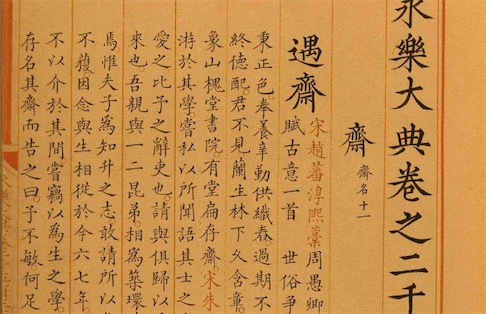 永樂大典卷之二千
齋 齋名十一
遇齋 宋趙蕃淳熙藁 周愚卿
賦古意一首 世俗爭
秉正色奉養辛勤供纖舂。過期不
終德配。君不見蘭生林下久含章。
象山槐堂書院。有堂扁存齋。宋朱
游於其學。嘗私以所聞語其士之
愛之。比子之辭吏也。請與俱歸以
來也。吾親與一二昆弟相為築環
焉。惟夫子為知升之志。敢請所以
不獲。因念與生相從於今六七年。
不以介於其間。嘗竊以為生之學。
存名其齋而告之曰。予不敏。何足